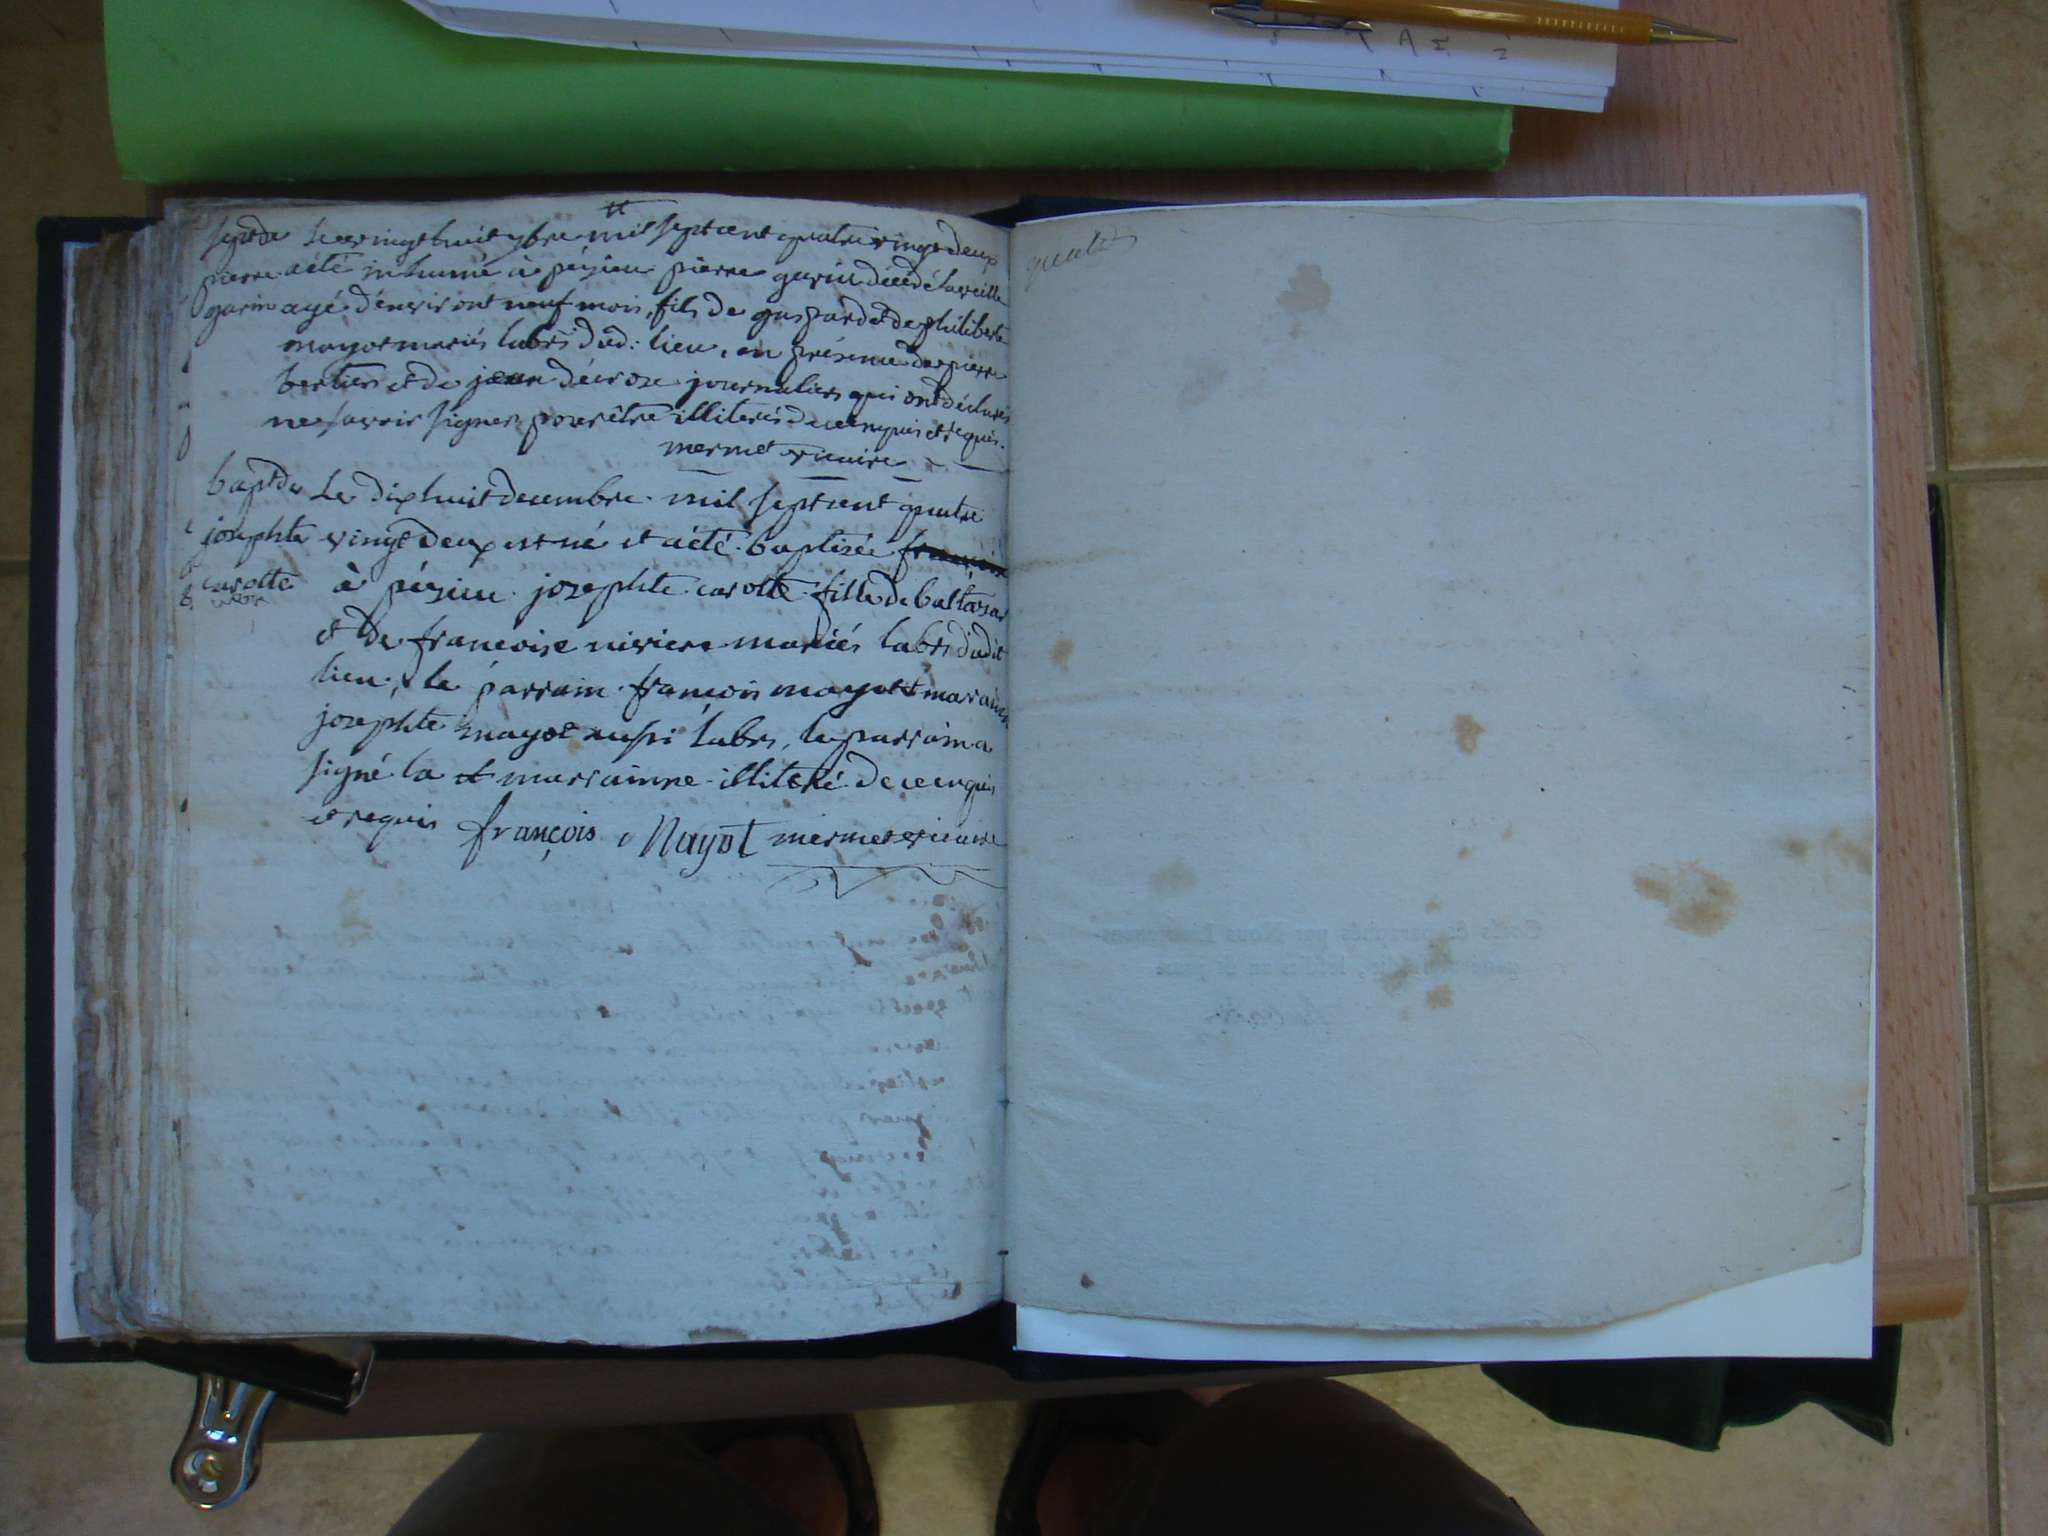 sept de Le vingt huit 9bre mil sept cent quatre vingt deux
pierre a été inhumé à pézieu pierre garin décédé la veille
garin agé d'environt neuf mois, fils de gaspard et de philiberte
mayot mariés labrs dud: lieu, en présence de pierre
et de jean décroze journaliers qui ont déclarés
ne savoir signer pour être illiterés de ce enquis et requis.
mermet vicaire
bapt de Le dix huit decembre mil sept cent quatre
josephte vingt deux est né et a été baptisée
carotte à pézieu josephte carotte fille de baltazar
et de francoise niviere mariés labrs dudit
lieu, le parrain françois mayot et marainne
josephte mayot aussi labrs, le parrain a
signé la et marrainne illiteré de ce enquis
et requis françois Mayot mermet vicaire